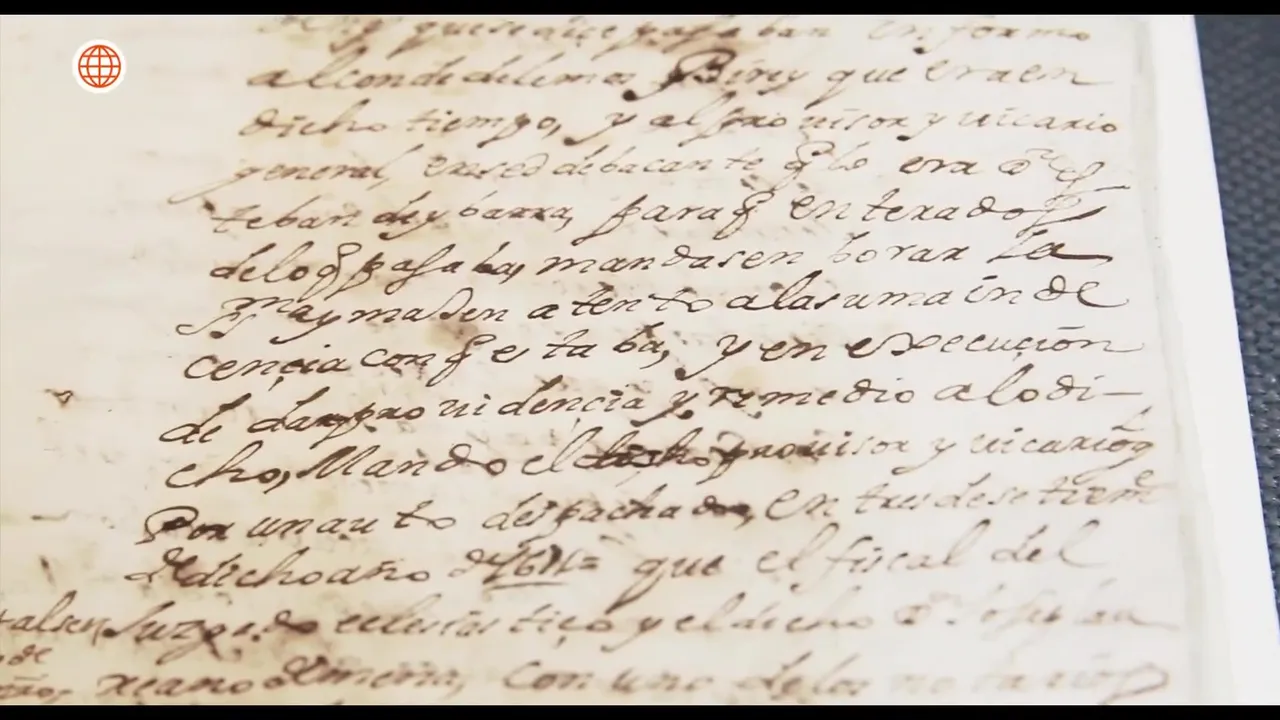 que se dice pasaban informo
al conde de lemos Birey que era en
dicho tiempo, y al prouisor y uicario
general, en sed debacante q̃ lo era Dr es
teban de ybarra, para q̃ enterados
delo q̃ pasaba, mandasen borrar la
Ymagen atento a la suma inde
cencia con q̃ estaba, y en execución
de dar prouidencia y remedio a lo di-
cho, Mando el dicho prouisor y uicario g
Por un auto despachado, en tres de setiem
de dicho año de 1671= que el fiscal del
Juzgado eclesiastico y el dicho Dn Joseph
Ximena, con uno de los notarios